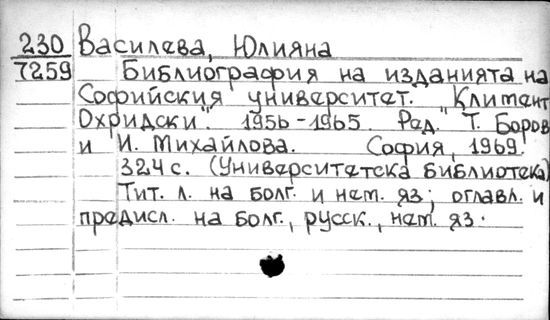 230 Василева, Юлияна
7259 Библиография на изданията на
Софийския университет. "Климент
Охридски". 1956-1965. Ред. Т. Боров
и И. Михайлова. София, 1969.
324 с. (Университетска библиотека)
Тит. л. на болг. и нем. яз; оглавл. и
предисл. на болг., русск., нем. яз.